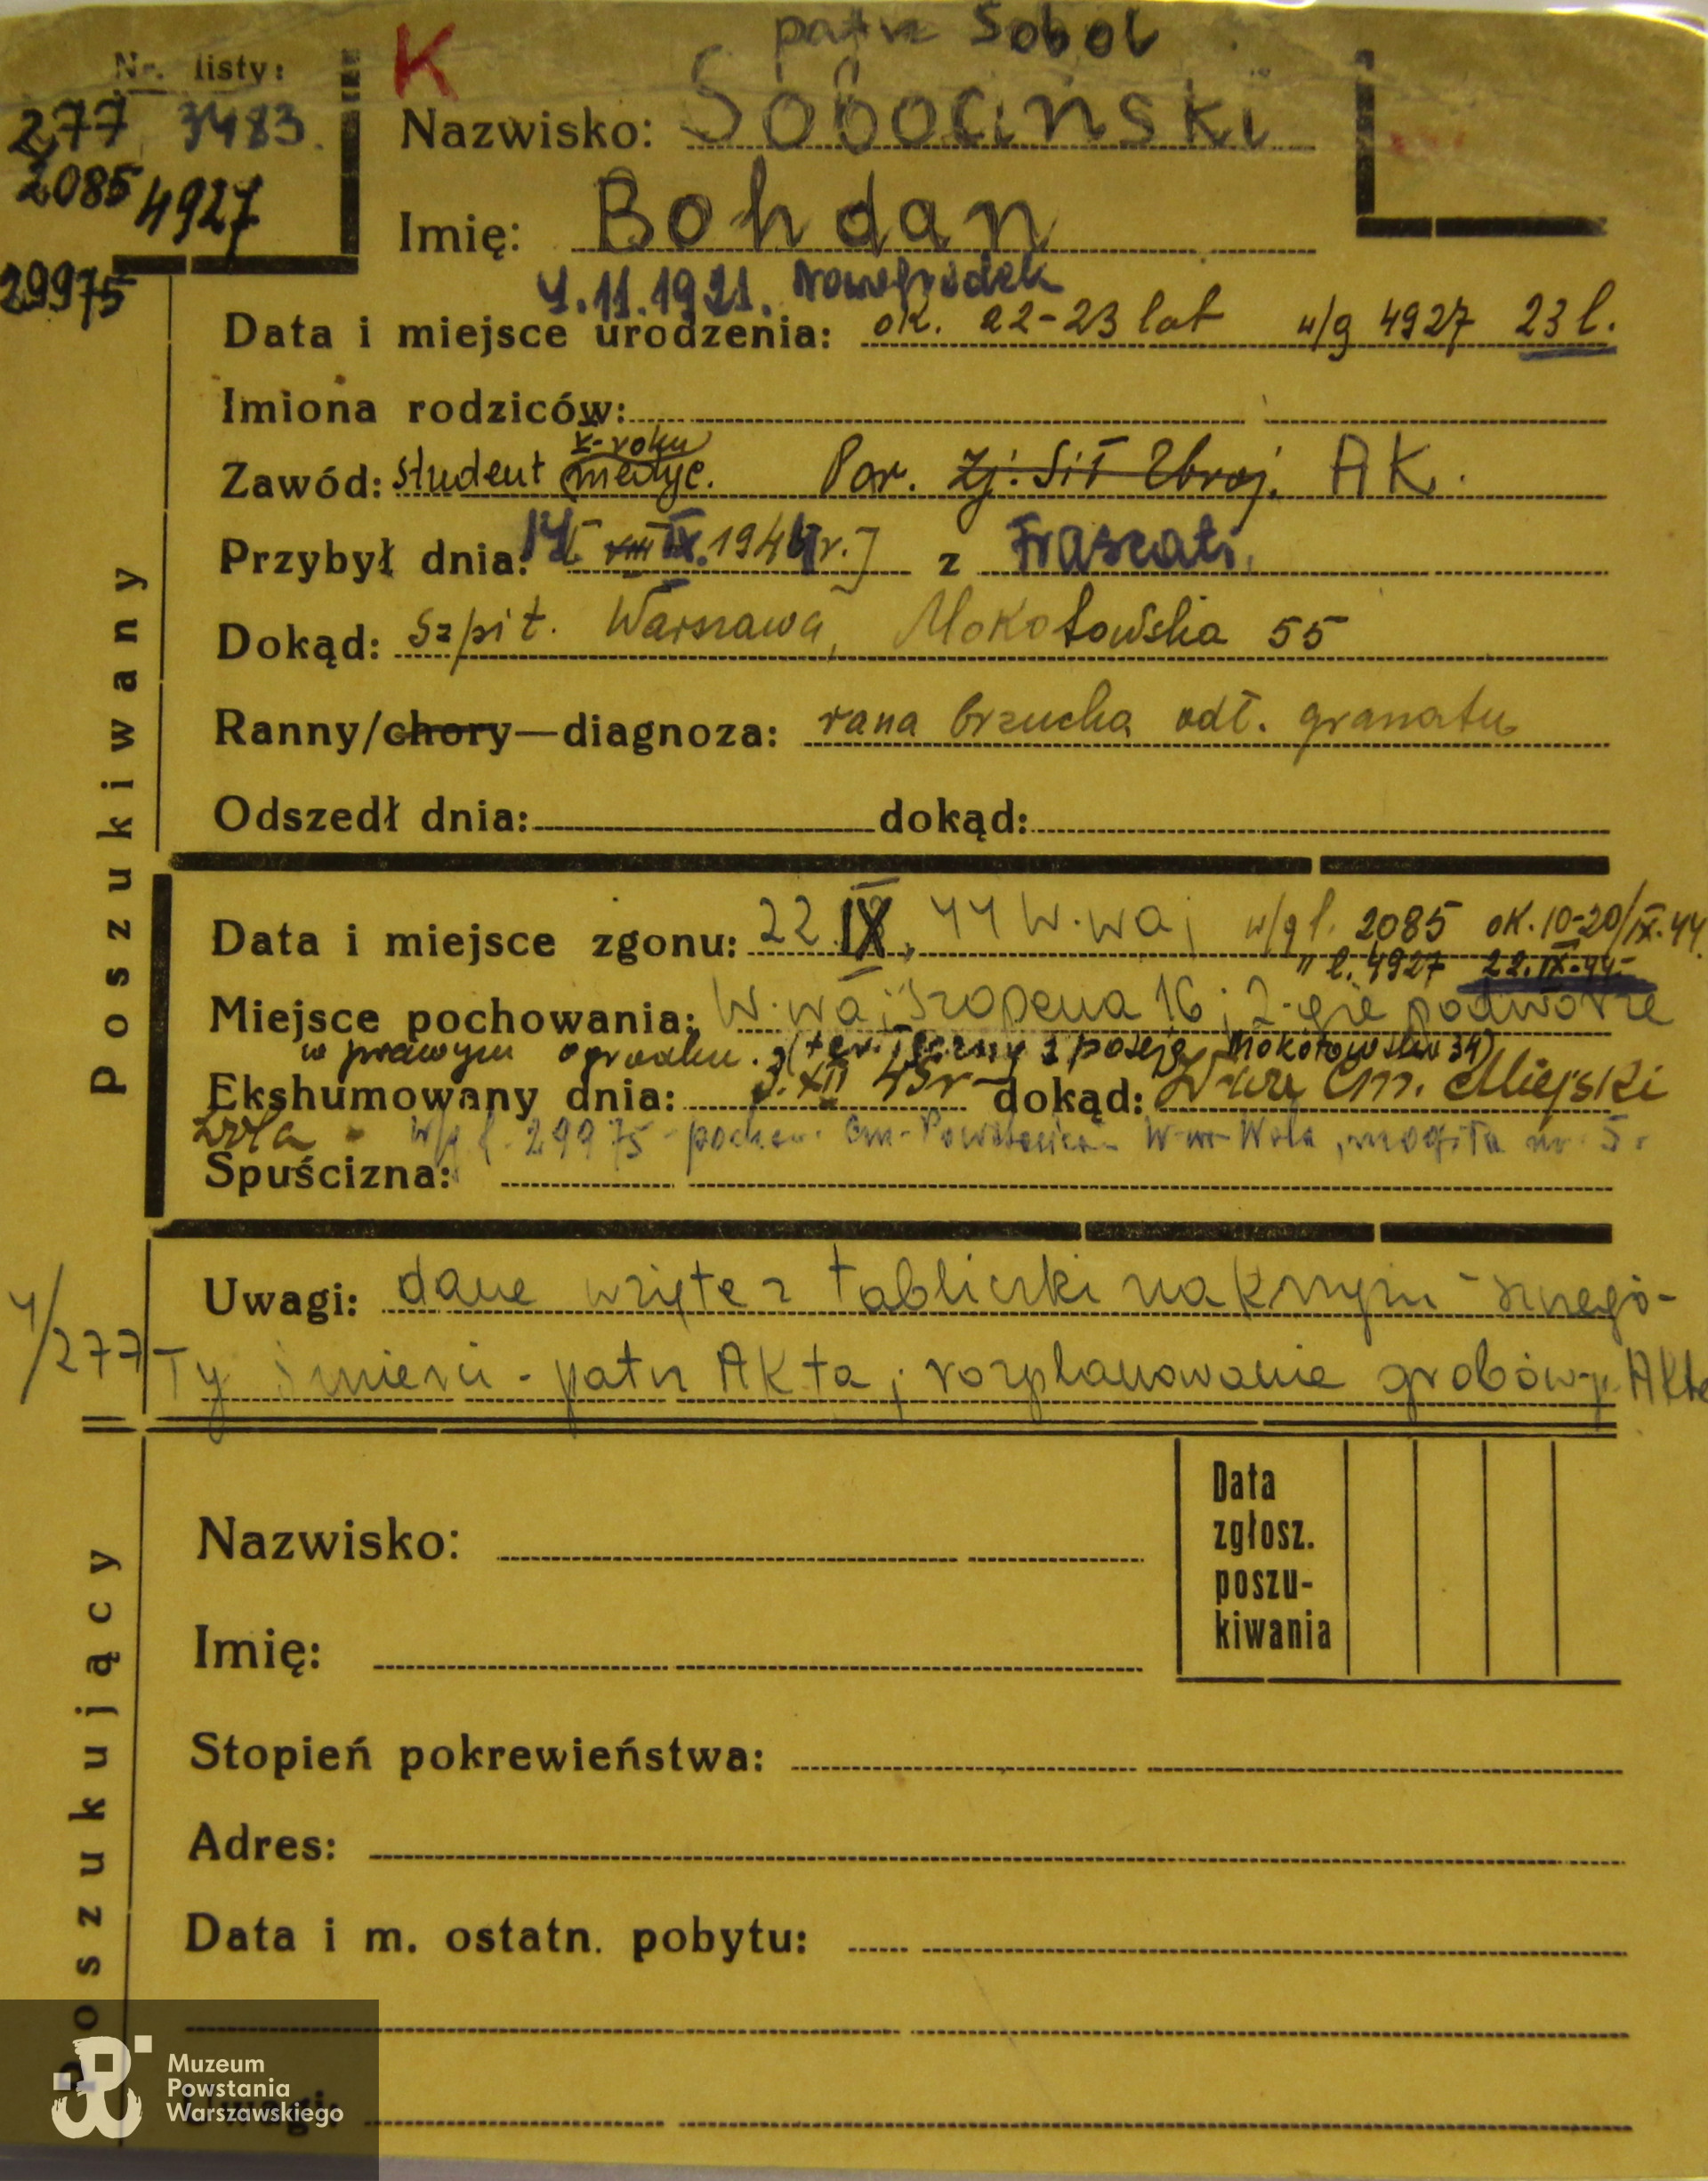 patrz Sobol
Nr. listy:
K
277 3483.
Nazwisko: Sobociński
2085 4927
Imię: Bohdan
29975
4.11.1921. Nowogródek
Data i miejsce urodzenia: ok. 22-23 lat w/g 4927 23 l.
Imiona rodziców:
V-roku
Zawód: student medyc. Par. Zj. Sił Zbroj. AK.
Przybył dnia: 14 VIII IX. 1944 r. z Frascati
Dokąd: Szpit. Warszawa, Mokotowska 55
Ranny/chory—diagnoza: rana brzucha odł. granatu
Odszedł dnia: dokąd:
Data i miejsce zgonu: 22 IX, 44 W-wa; w/g l. 2085 ok. 10-20/IX.44.
" l. 4927 22.IX.44
Miejsce pochowania: W-wa; Szopena 16; 2-gie podwórze
w prawym ogrodku. z posesją Mokotowska 34)
Ekshumowany dnia: 3.XII 45 r dokąd: Cm. Miejski
Wola w/g l. 29975 - pochow. Cm. Powstańców W-wa Wola, mogiła nr 5.
Spuścizna:
Uwagi: dane wzięte z tabliczki na krzyżu - szczegó-
4/277
ły śmierci - patrz AKta; rozplanowanie grobów p. AKta
Poszukiwany
Nazwisko:
Data
zgłosz.
poszu-
kiwania
Imię:
Stopień pokrewieństwa:
Adres:
Data i m. ostatn. pobytu:
Uwagi:
Poszukujący
Muzeum
Powstania
Warszawskiego